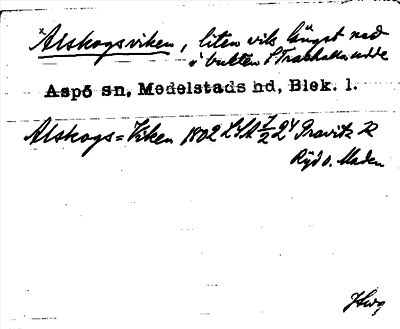 x Alskogsviken, liten vik längst ned
i bukten S Trabhalla udde
Aspö sn, Medelstads hd, Blek. l.
Alskogs=Viken 1802 LSA Gravitz R
Röjd o. Maden
Hwg